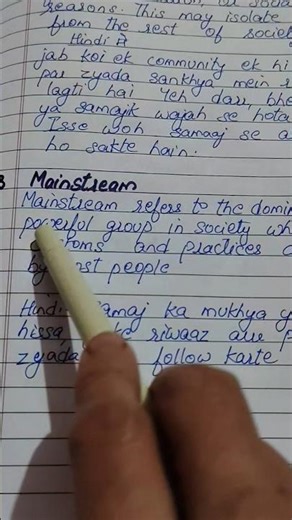 reasons. This may isolate
from the rest of societ
Hindi में
jab koi ek community ek hi
par zyada sankhya mein r
lagti hai Yeh darr, bhe
ya samajik wajah se hota
Isse woh samaaj se a
ho sakte hain.
Mainstream
Mainstream refers to the domin
powerful group in society wh
and practices
people
Hindi
samaj ka mukhya y
hissa, riwaaz aur p
zyada follow karte